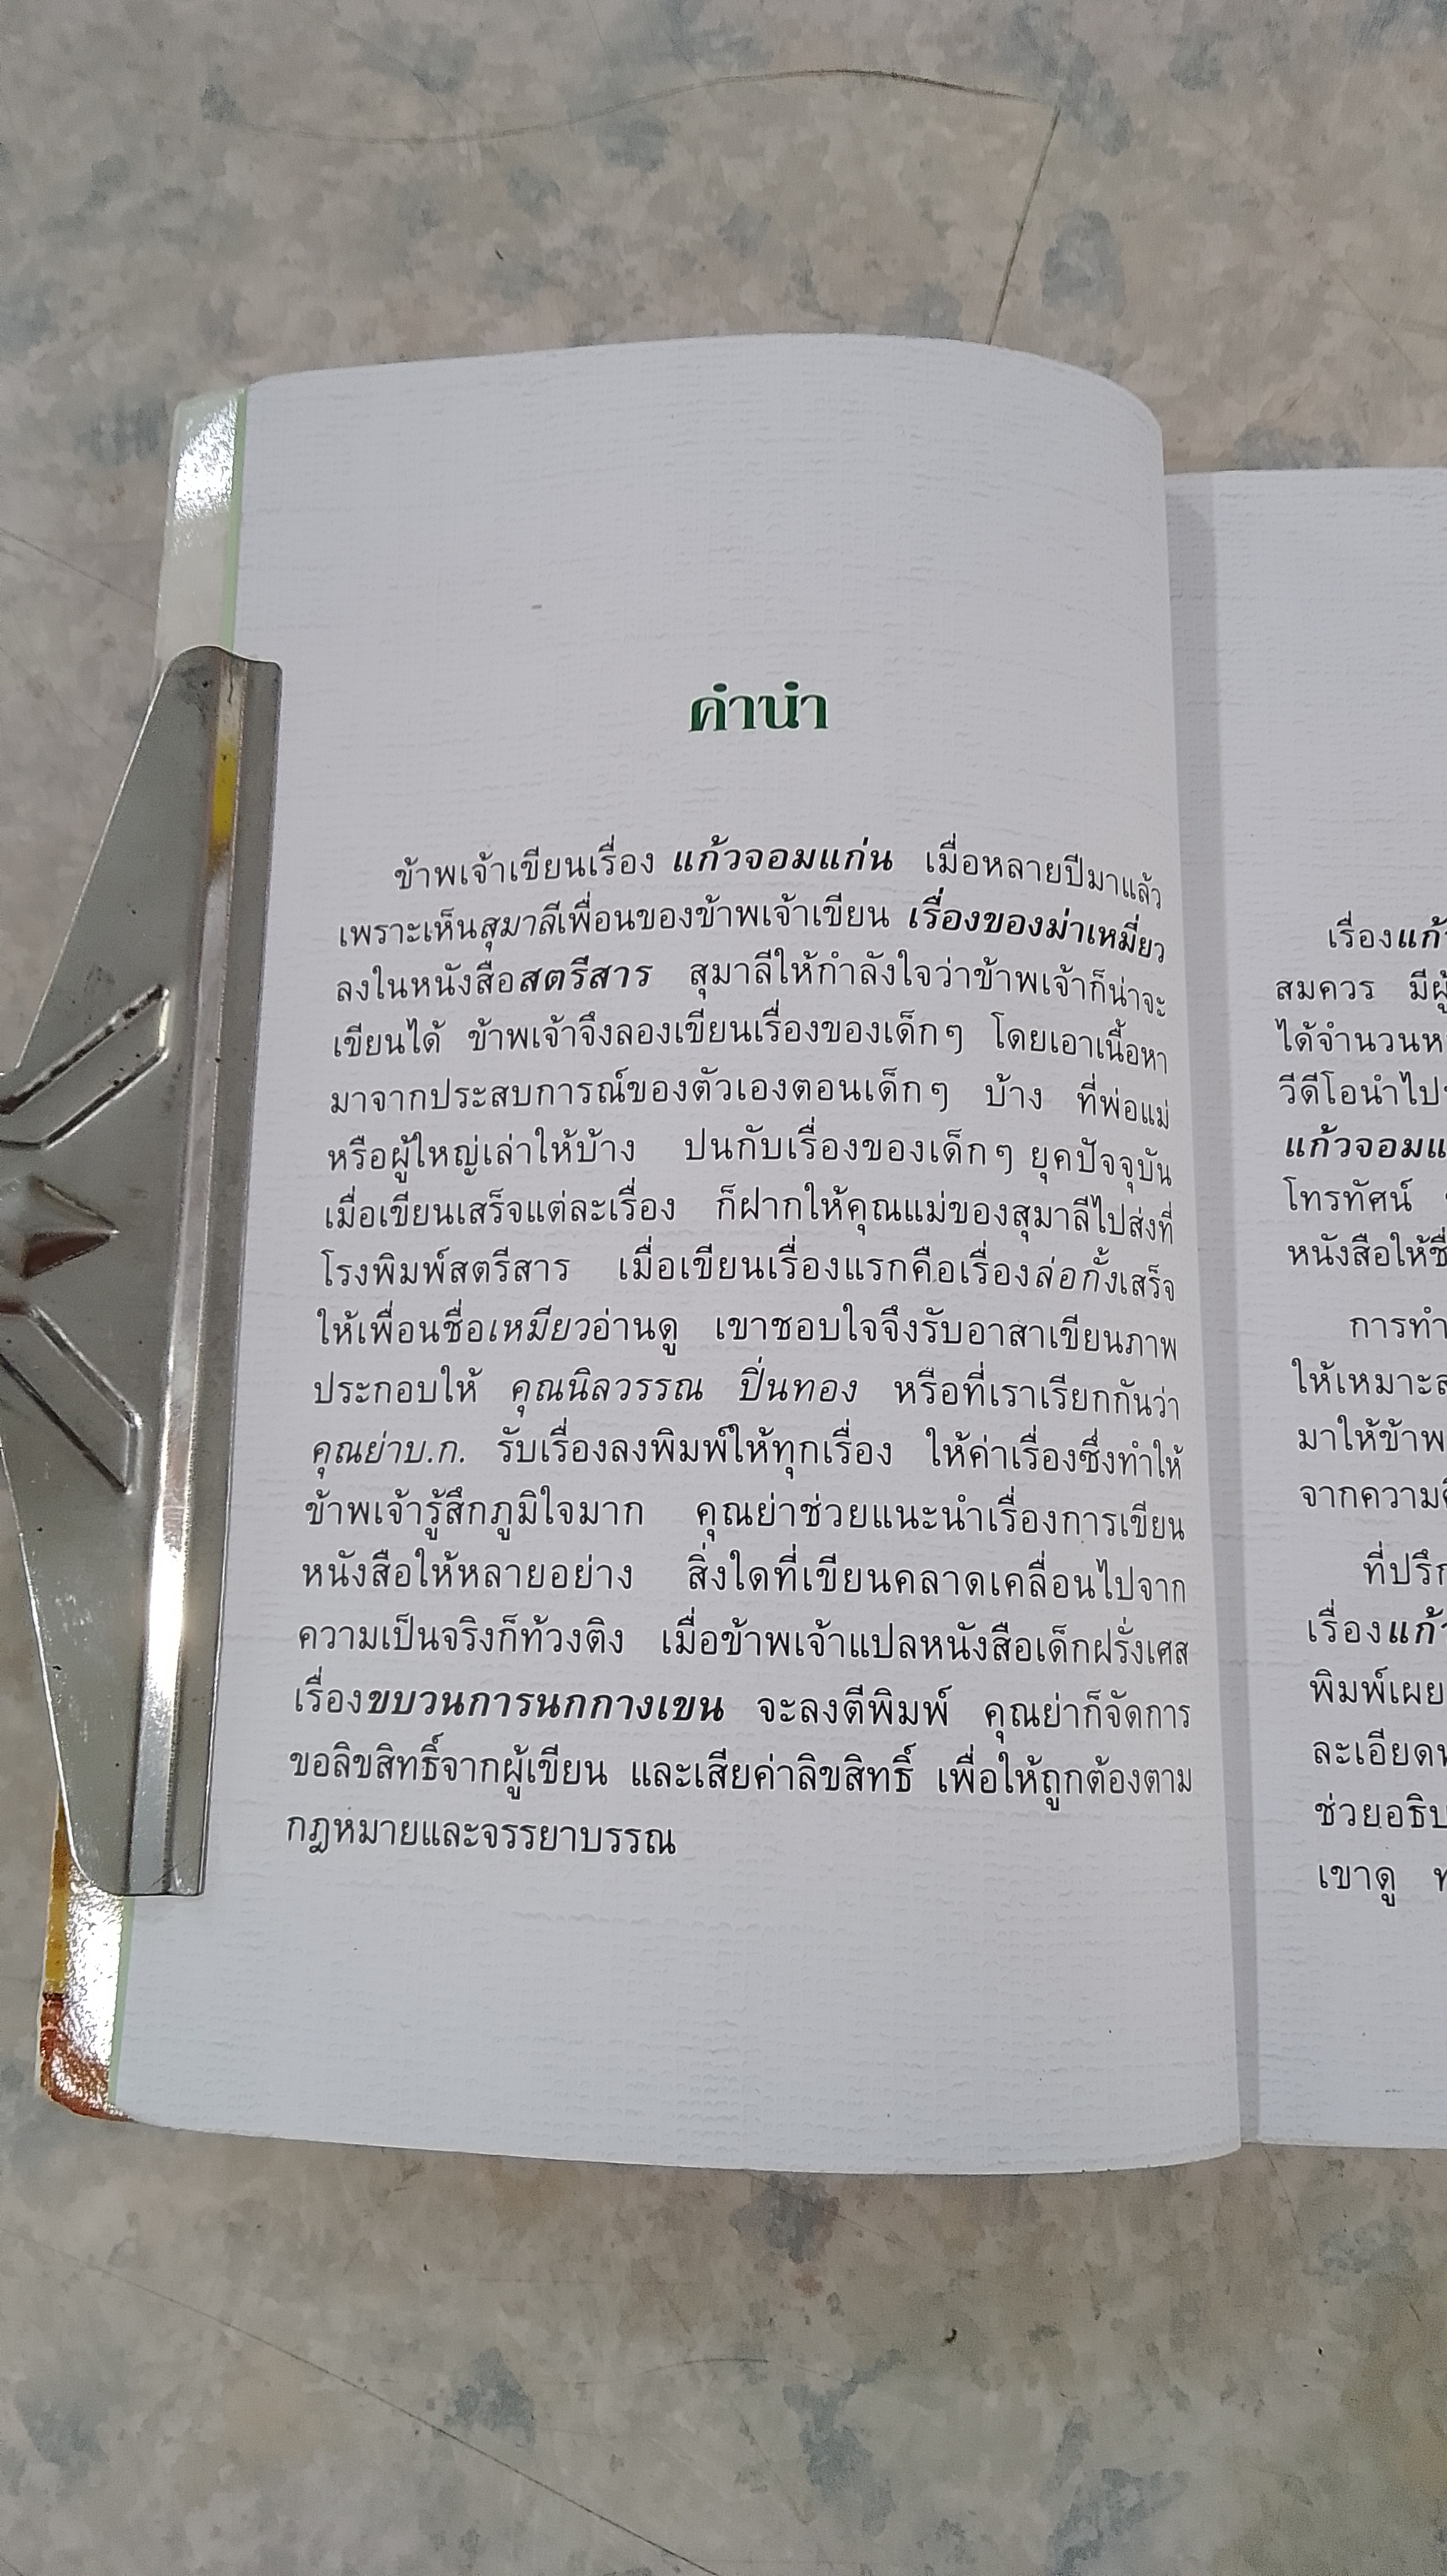 คำนำ
ข้าพเจ้าเขียนเรื่อง แก้วจอมแก่น เมื่อหลายปีมาแล้ว
เพราะเห็นสุมาลีเพื่อนของข้าพเจ้าเขียน เรื่องของม่าเหมี่ยว
ลงในหนังสือสตรีสาร สุมาลีให้กำลังใจว่าข้าพเจ้าก็น่าจะ
เขียนได้ ข้าพเจ้าจึงลองเขียนเรื่องของเด็กๆ โดยเอาเนื้อหา
มาจากประสบการณ์ของตัวเองตอนเด็กๆ บ้าง ที่พ่อแม่
หรือผู้ใหญ่เล่าให้บ้าง ปนกับเรื่องของเด็กๆ ยุคปัจจุบัน
เมื่อเขียนเสร็จแต่ละเรื่อง ก็ฝากให้คุณแม่ของสุมาลีไปส่งที่
โรงพิมพ์สตรีสาร เมื่อเขียนเรื่องแรกคือเรื่องล่อกั้งเสร็จ
ให้เพื่อนชื่อเหมียวอ่านดู เขาชอบใจจึงรับอาสาเขียนภาพ
ประกอบให้ คุณนิลวรรณ ปิ่นทอง หรือที่เราเรียกกันว่า
คุณย่าบ.ก. รับเรื่องลงพิมพ์ให้ทุกเรื่อง ให้ค่าเรื่องซึ่งทำให้
ข้าพเจ้ารู้สึกภูมิใจมาก คุณย่าช่วยแนะนำเรื่องการเขียน
หนังสือให้หลายอย่าง สิ่งใดที่เขียนคลาดเคลื่อนไปจาก
ความเป็นจริงก็ท้วงติง เมื่อข้าพเจ้าแปลหนังสือเด็กฝรั่งเศส
เรื่องขบวนการนกกางเขน จะลงตีพิมพ์ คุณย่าก็จัดการ
ขอลิขสิทธิ์จากผู้เขียน และเสียค่าลิขสิทธิ์ เพื่อให้ถูกต้องตาม
กฎหมายและจรรยาบรรณ
เรื่อง
สมควร
ได้จำนวน
วีดีโอนำไป
แก้วจอม
โทรทัศน์
หนังสือให้
การทำ
ให้เหมาะ
มาให้
จากความ
เรื่อง
พิมพ์
ละเอียด
ช่วย
เขาดู